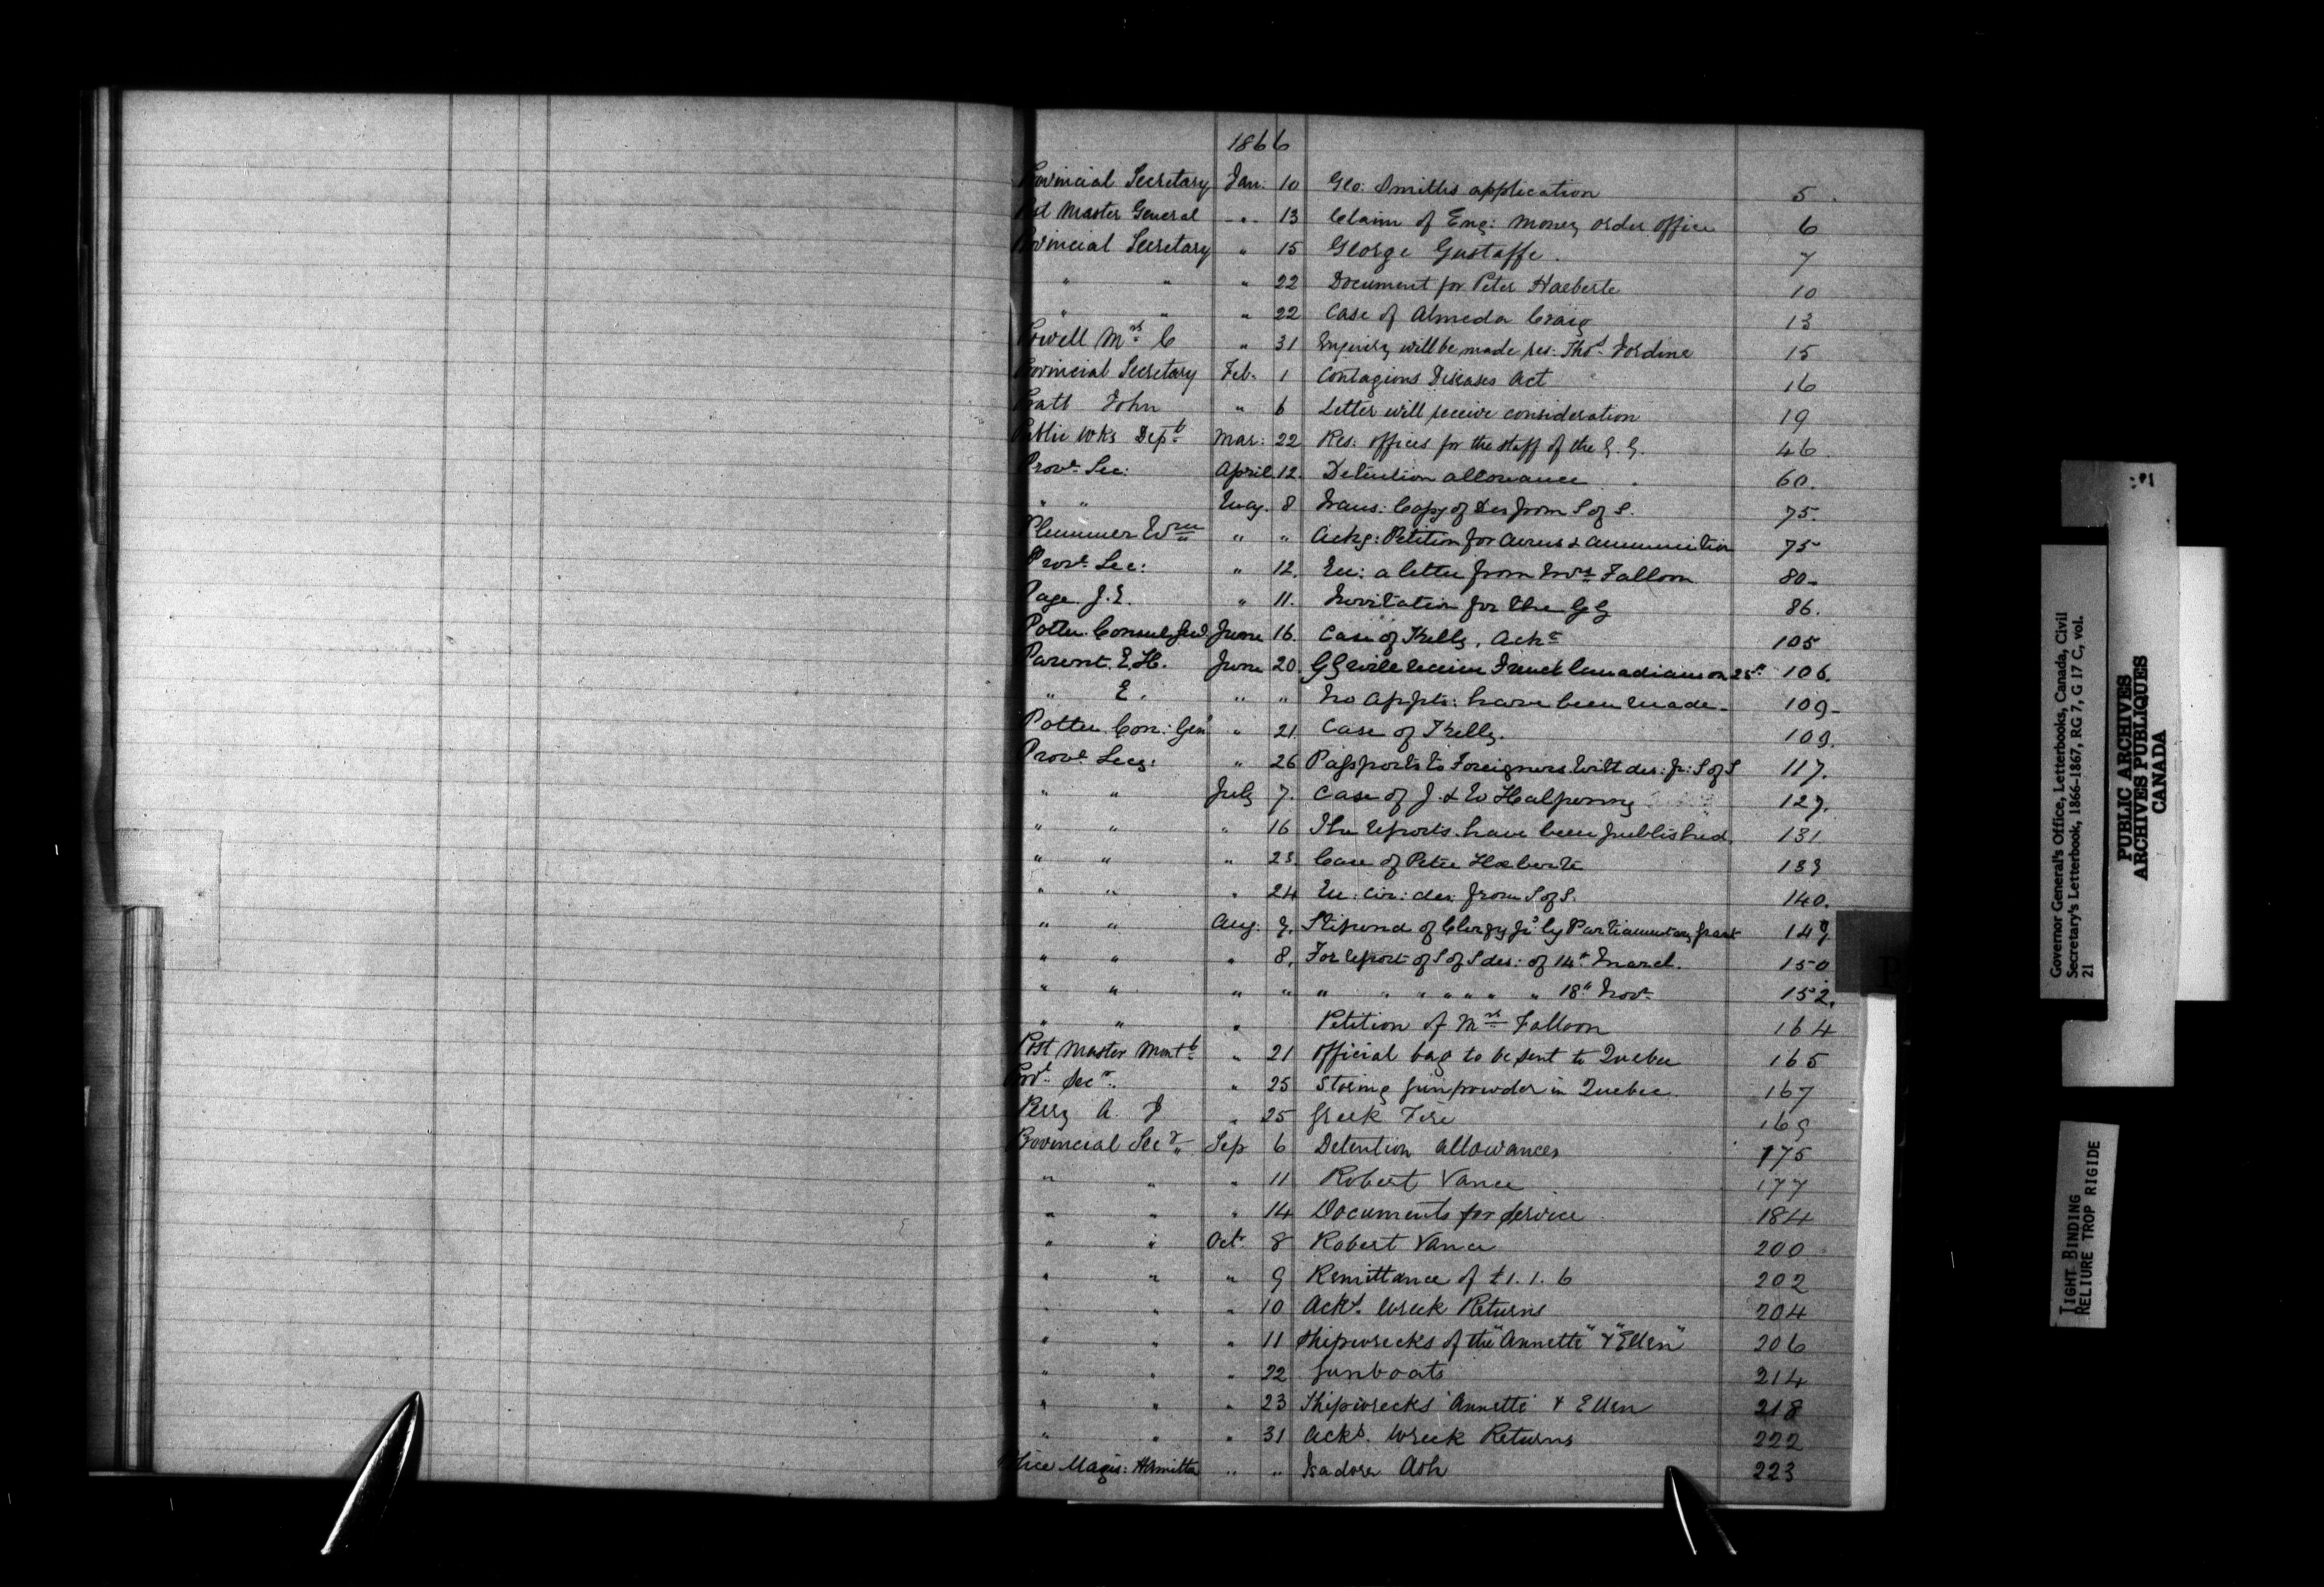 1866
Provincial Secretary Jan: 10 Geo: Smiths application 5
Post Master General " 13 Claim of Eng: Money order office 6
Provincial Secretary " 15 George Gustaffe. 7
" " " 22 Document for Peter Haeberle 10
" " " 22 Case of Almeda Craig 13
Powell Mrs C " 31 Enquiry will be made res: Thos Fordine 15
Provincial Secretary Feb. 1 Contagious Diseases Act 16
Pratt John " 6 Letter will receive consideration 19
Public Wks Dept Mar: 22 Res: offices for the staff of the G.G. 46
Provl Sec: April 12. Detention allowance 60.
" " May. 8 Trans: Copy of Des from S of S. 75.
Plummer Wm " " Ackg: Petition for arms & ammunition 75
Provl Sec: " 12. Enc: a letter from Mrs Falloon 80-
Page J.E. " 11. Invitation for the GG 86.
Potter Consul Genl June 16. Case of Kelly. Ackg 105
Parent. E.H. June 20. GG will receive French Canadians on 25th 106.
" E. " " No appts: have been made- 109-
Potter Con: Genl " 21 Case of Kelly. 109.
Provl Secy: " 26 Passports to Foreigners. Witt des: fr: S of S 117.
" " July 7. Case of J. & W Halpenny 127.
" " " 16 The reports have been published. 131
" " " 23 Case of Peter Haeberle 139
" " " 24 Enc: cir: des from S of S. 140.
" " Aug. 7. Stipend of Clergy fr by Parliamentary grant 147.
" " " 8. For report of S of S des: of 14th March. 150
" " " " " " " " " " " 18th Novr 152.
" " " Petition of Mrs Falloon 164
Post Master Montl " 21 Official bag to be sent to Quebec 165
Provl Secy. " 25 Storing gunpowder in Quebec. 167
Perry A. J " 25 Greek Fire 169
Provincial Secy " Sep 6 Detention allowances 175
" " " 11 Robert Vance 177
" " " 14 Documents for service 184
" " Oct 8 Robert Vance 200
" " " 9 Remittance of £1.1.6 202
" " " 10 Ackd. Wreck Returns 204
" " " 11 Shipwrecks of the "Annette" & "Ellen" 206
" " " 22 Gunboats 214
" " " 23 Shipwrecks Annette & Ellen 218
" " " 31 Ackd. Wreck Returns 222
Police Magis: Hamilton " " Isadore Ash 223
P
Governor General's Office, Letterbooks, Canada, Civil
Secretary's Letterbook, 1866-1867, RG 7, G 17 C, vol.
21
PUBLIC ARCHIVES
ARCHIVES PUBLIQUES
CANADA
TIGHT BINDING
RELIURE TROP RIGIDE